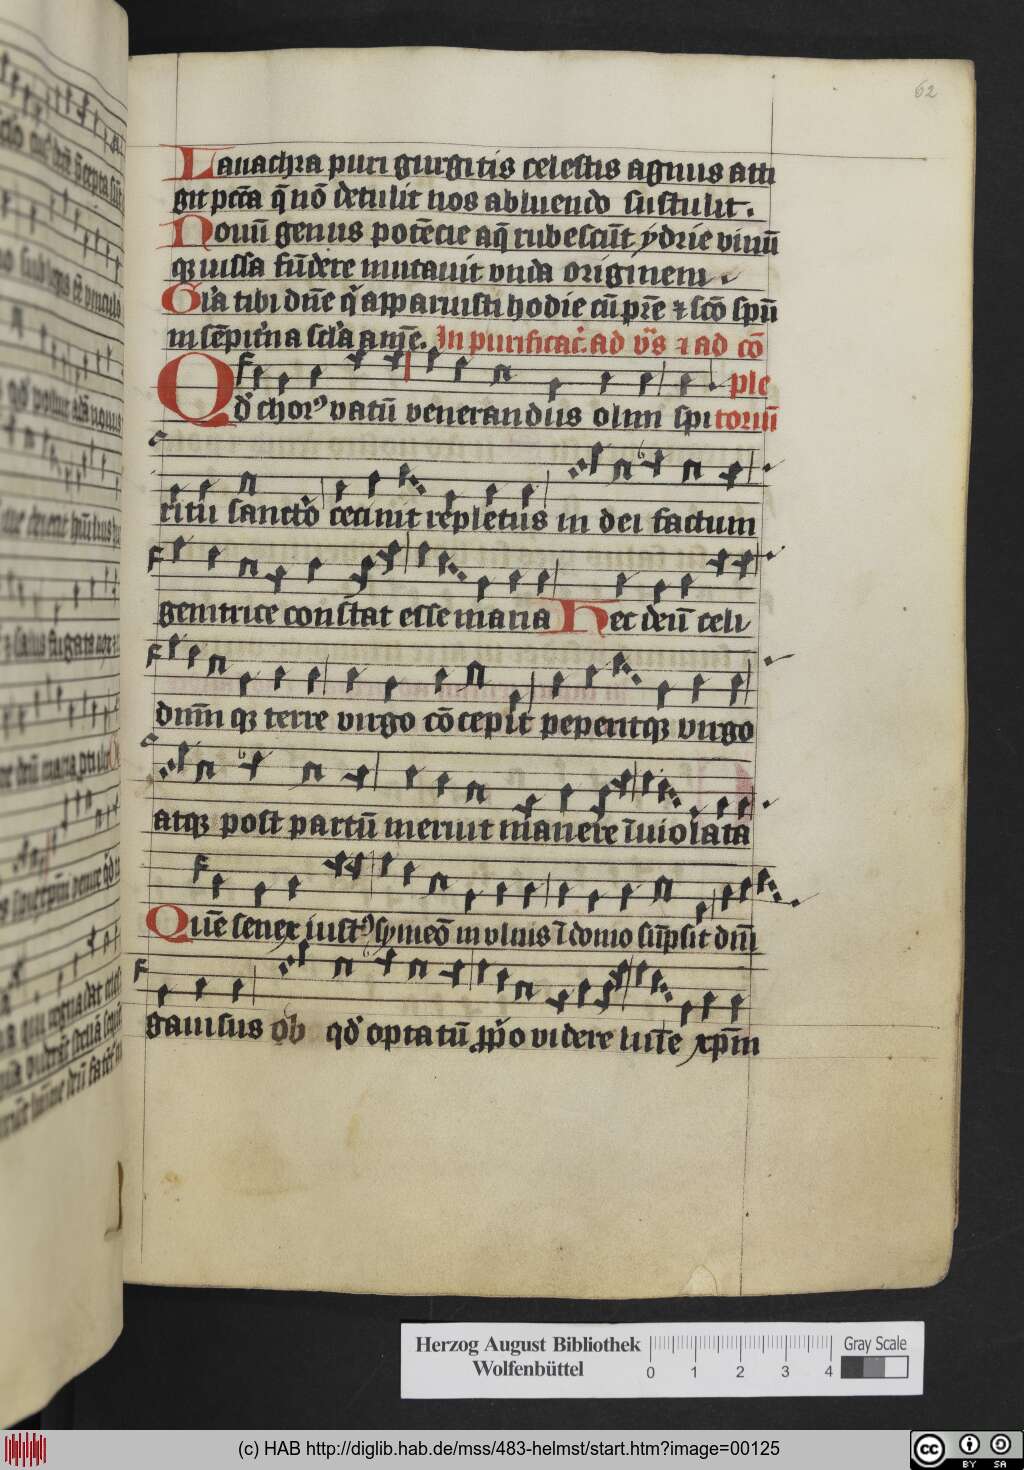 62
Lauachra puri gurgitis celestis agnus atti
git pctā q̄ nō detulit nos abluendo sustulit.
Nouū genus potēcie aq̄ rubescūt ydrie vinū
qz iussa fūdere mutauit vnda originem
Glā tibi dn̄e q̄ apparuisti hodie cū pr̄e ⁊ scō spū
in sēpitna scl̄a amē. In purificac̄ ad vs̄ ⁊ ad cō
ple
Qd̄ chorꝰ vatū venerandus olim spi toriū
ritu sancto cecinit repletus in dei factum
genitrice constat esse maria Hec deū celi
dnm̄ qz terre virgo cōcepit peperitqz virgo
atqz post partū meruit manere īuiolata
Quē senex iustꝰ symeō in vlnis ī domo sūpsit dn̄i
gauisus ob qd̄ optatū ꝓpo videre lum̄e xp̄m
Herzog August Bibliothek
Wolfenbüttel
0 1 2 3 4
Gray Scale
(c) HAB http://diglib.hab.de/mss/483-helmst/start.htm?image=00125
cc BY SA